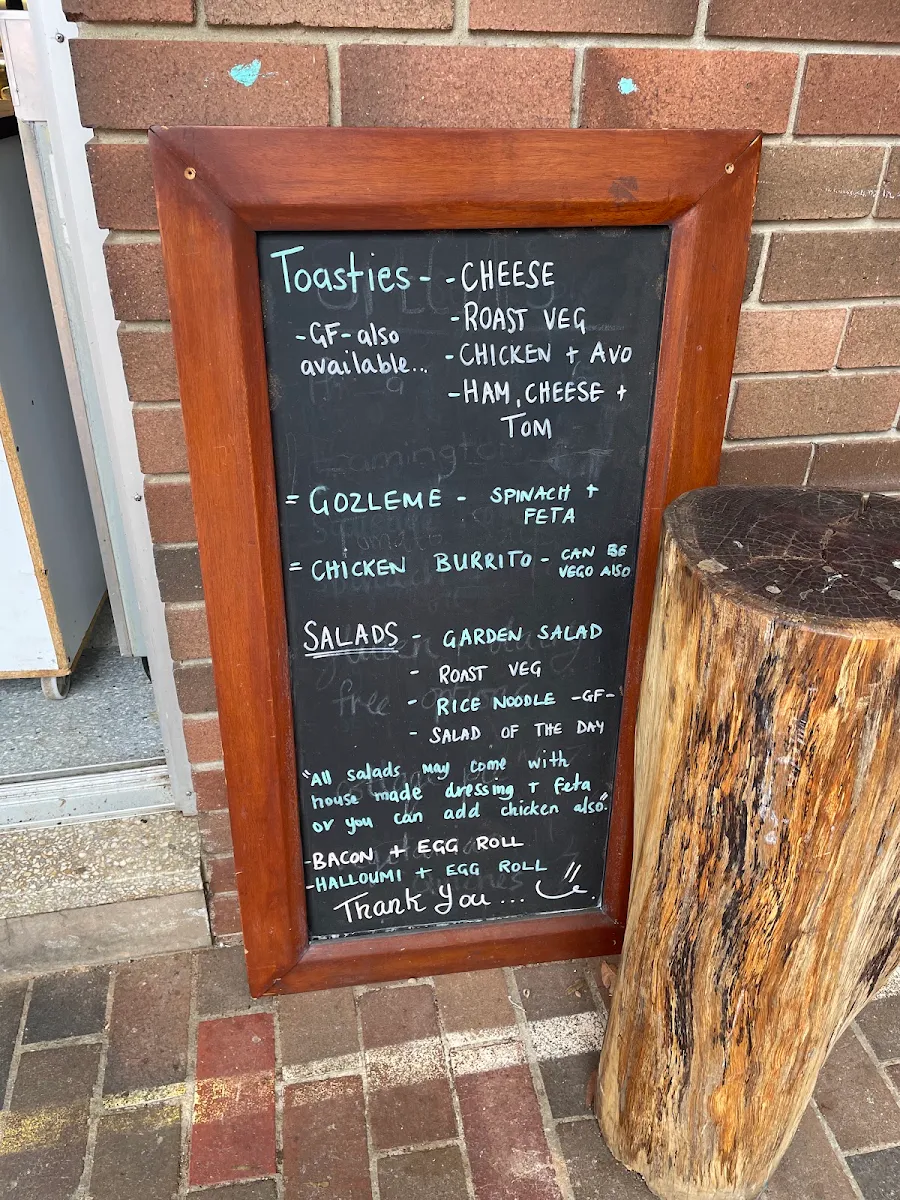 Toasties - - CHEESE
- ROAST VEG
-GF- also
available...
- CHICKEN + AVO
- HAM, CHEESE +
TOM
= GOZLEME - SPINACH +
FETA
= CHICKEN BURRITO - CAN BE
VEGO ALSO
SALADS - GARDEN SALAD
- ROAST VEG
- RICE NOODLE -GF-
- SALAD OF THE DAY
"All salads may come with
house made dressing + feta
or you can add chicken also".
-BACON + EGG ROLL
-HALLOUMI + EGG ROLL
Thank You...